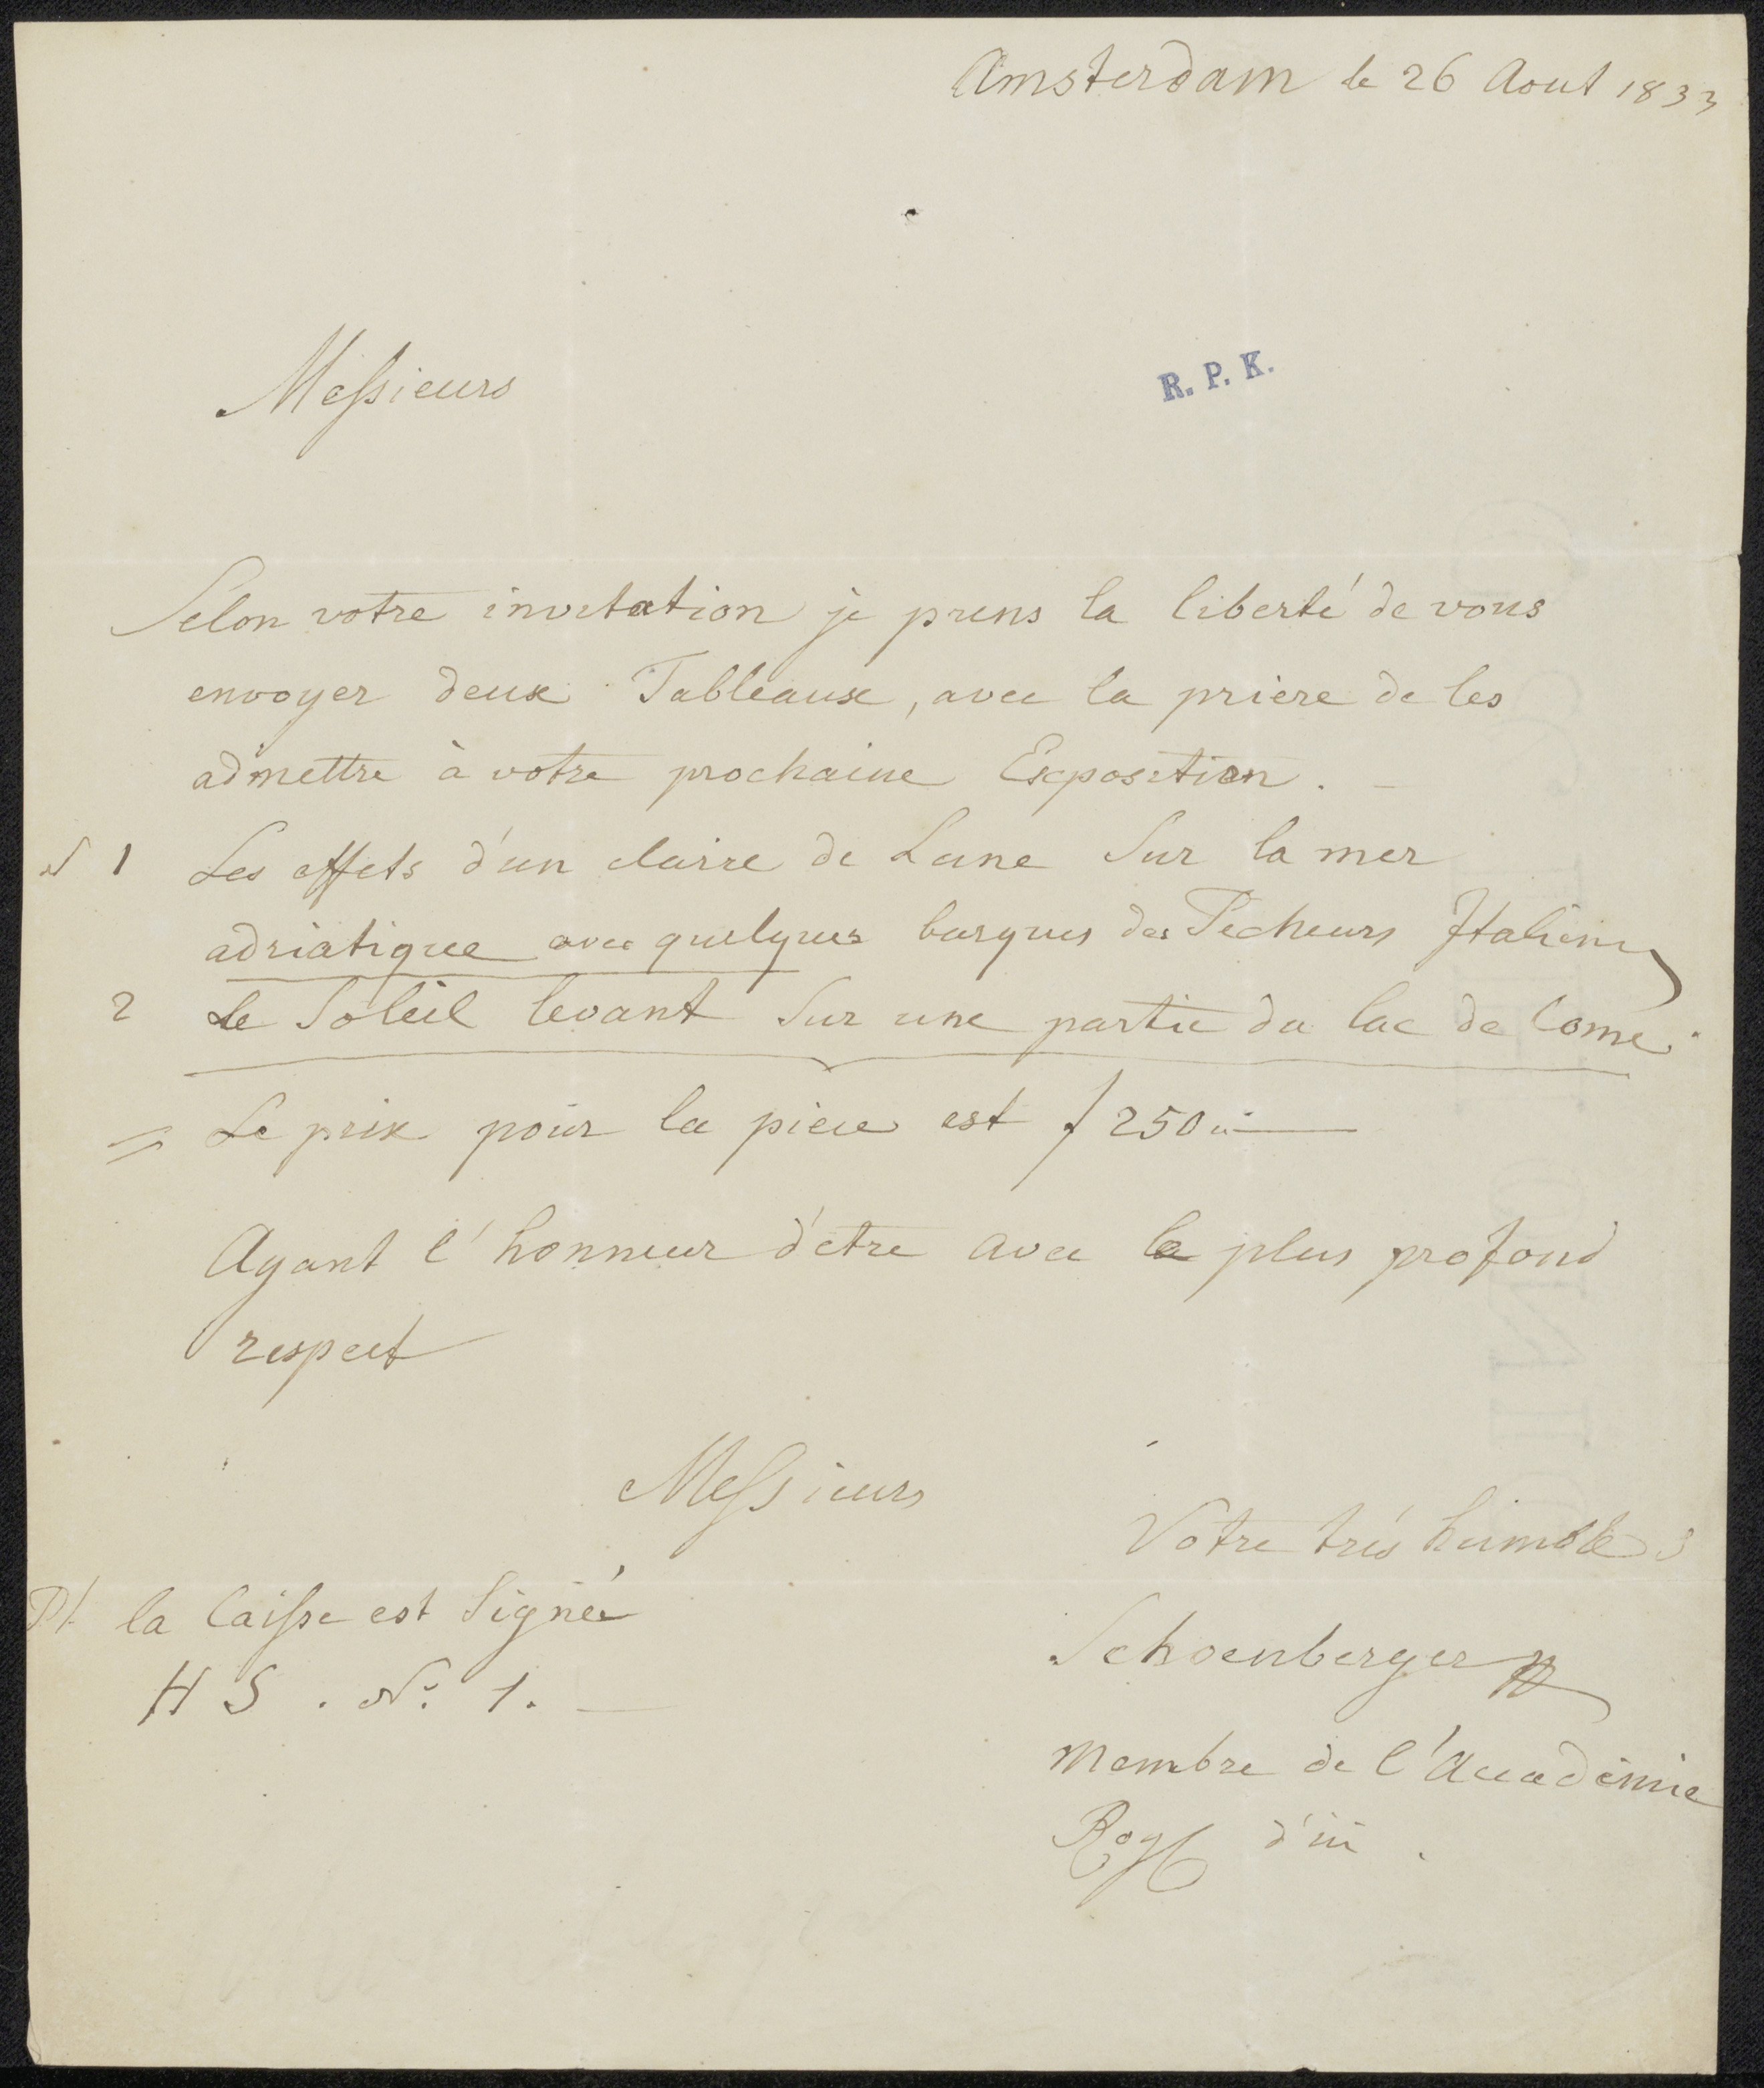 Amsterdam le 26 Aout 1833
R. P. K.
Messieurs
Selon votre invitation je prens la liberté de vous
envoyer deux Tableaux, avec la priere de les
admettre à votre prochaine Exposition. -
N 1 Les effets d'un claire de Lune Sur la mer
adriatique avec quelques barques des Pecheurs Italiens
2 Le Soleil levant Sur une partie du lac de Come.
= Le prix pour la piece est f 250
Ayant l'honneur d'etre avec le plus profond
respect
Messieurs
Votre trés humble S
Schoenberger
Membre de l'Academie
Roy d'ici.
PS. la Caisse est Signée
H S. No. 1. -